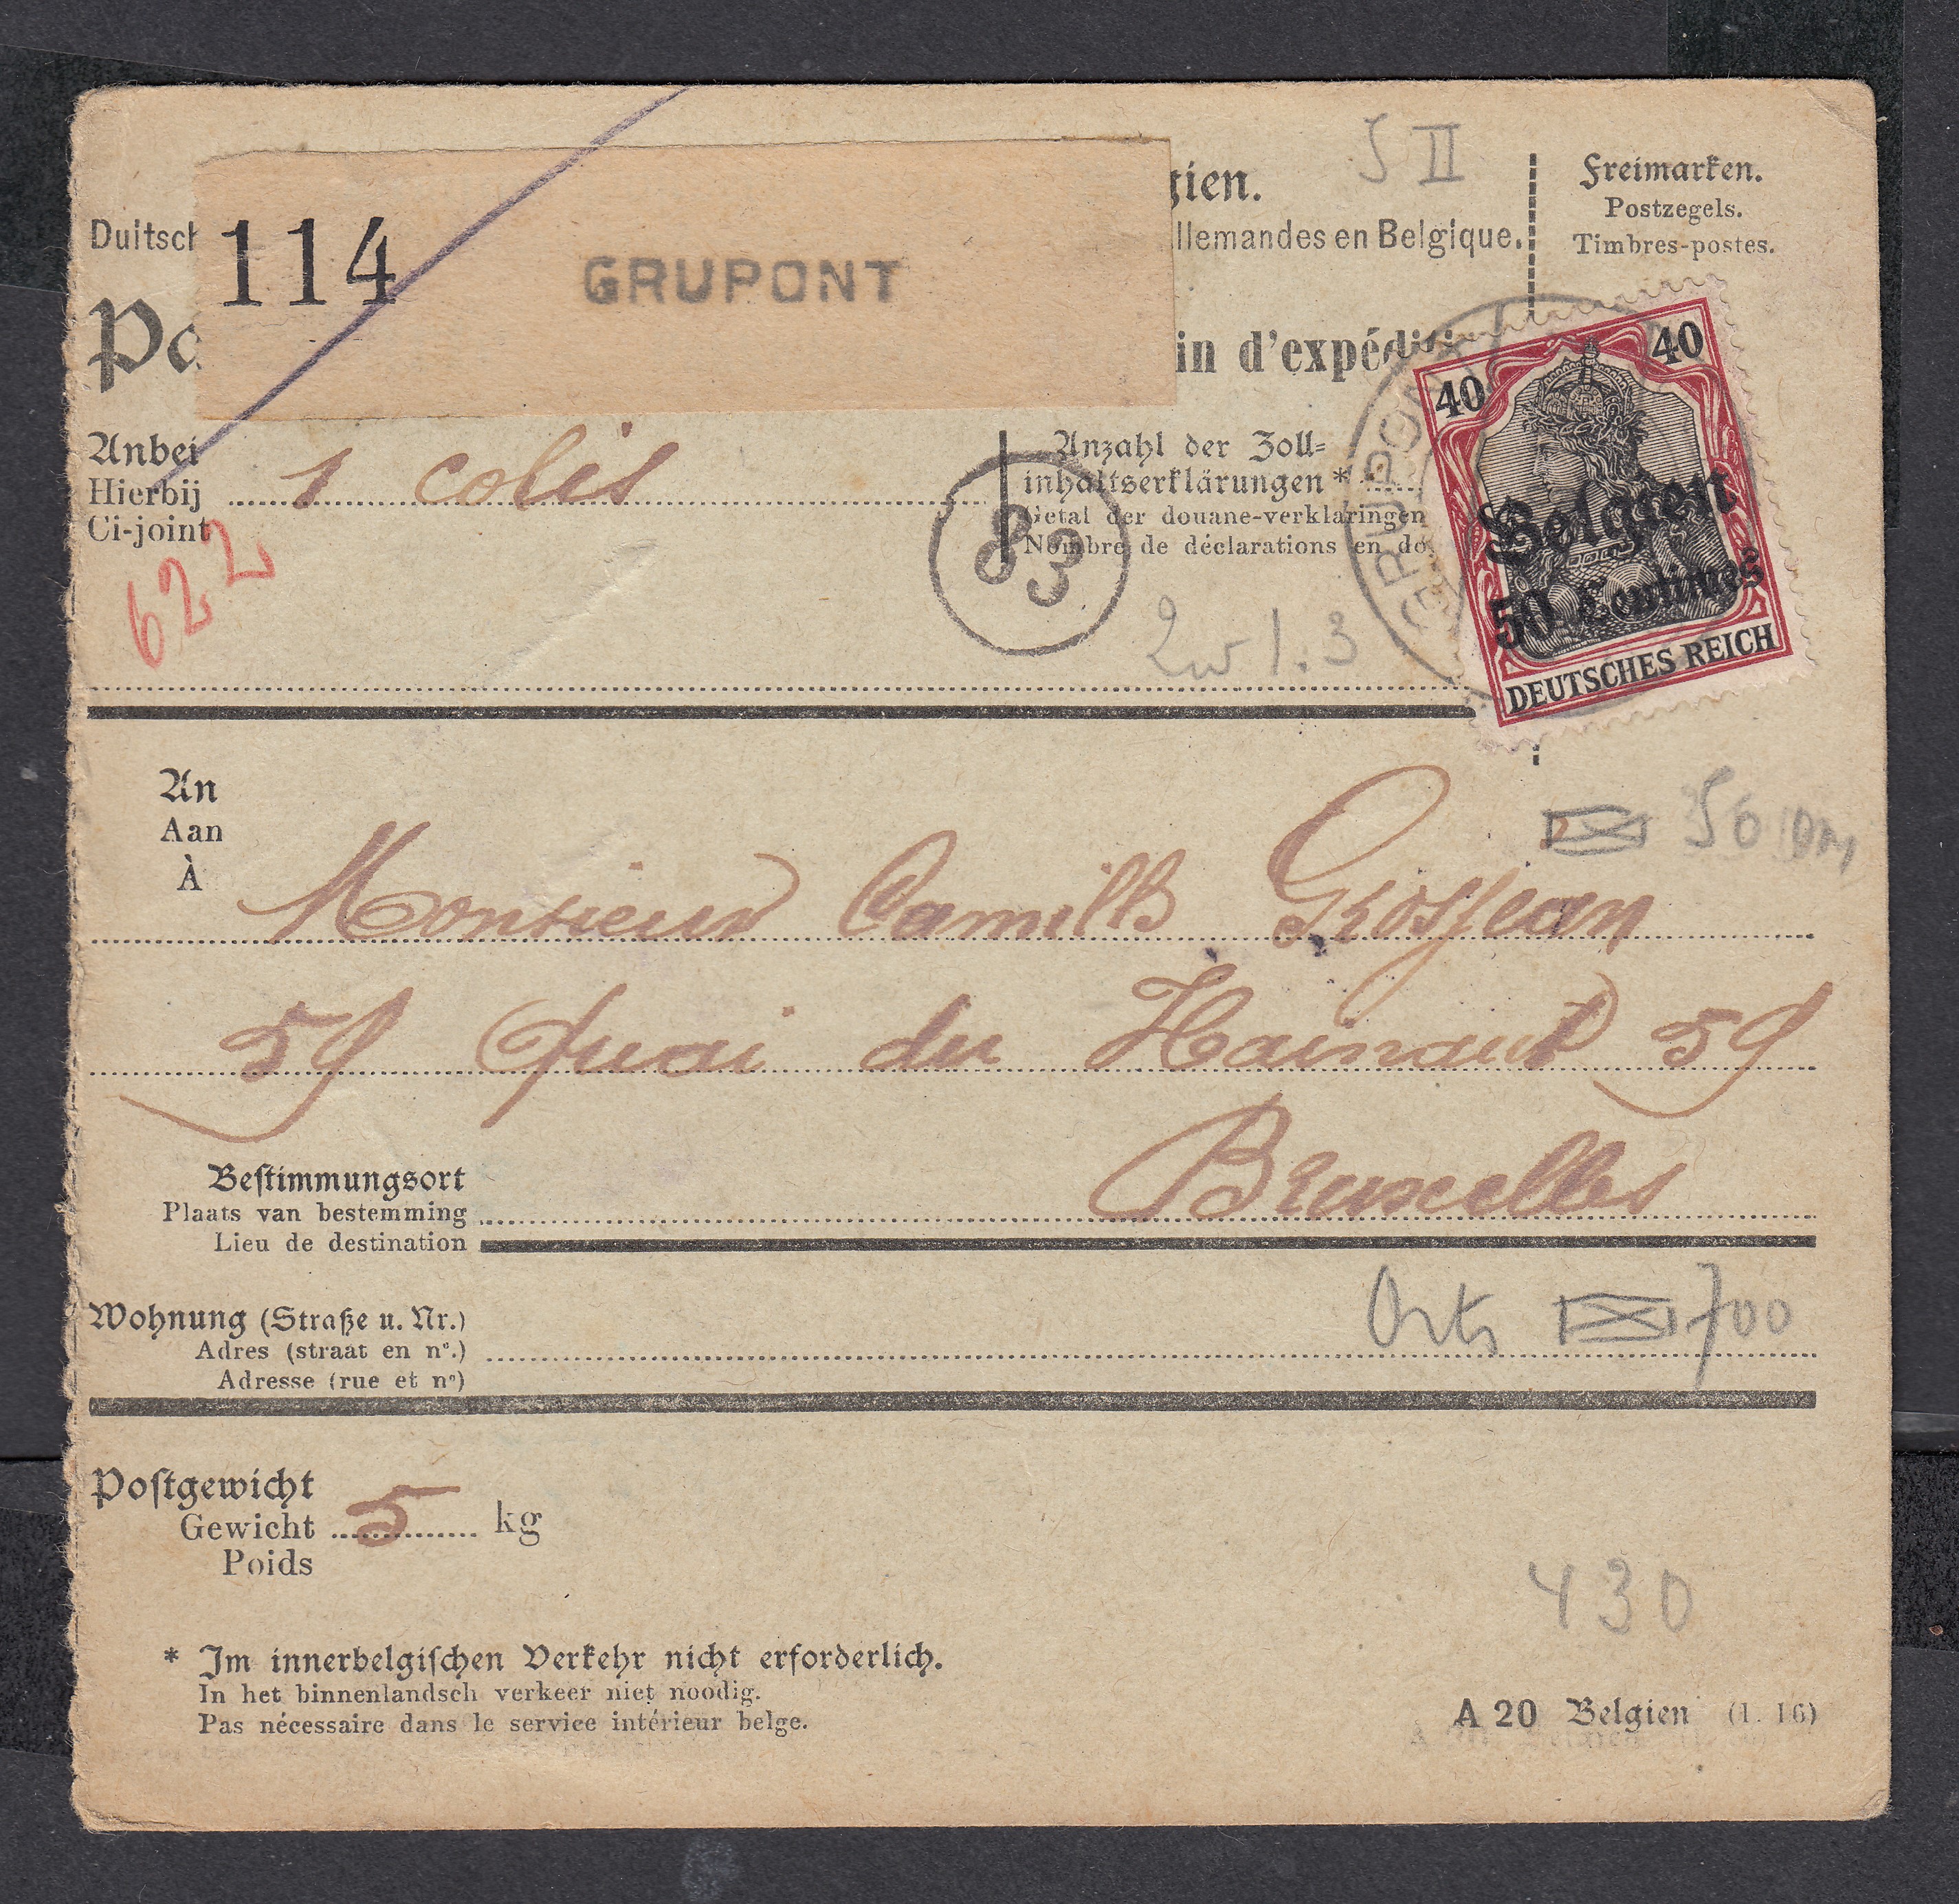 gien.
S II
Freimarken.
Postzegels.
Timbres-postes.
Duitsch
114
GRUPONT
llemandes en Belgique.
Po
in d'expéditi
40
40
Belgien
50 Centimes
DEUTSCHES REICH
GRUPONT
Anbei
Hierbij
Ci-joint
1 colis
Anzahl der Zoll=
inhaltserklärungen *
Getal der douane-verklaringen
Nombre de déclarations en do
83
622
1.3
An
Aan
À
50
Monsieur Camille Grosjean
59 Quai du Hainaut 59
Bruxelles
Bestimmungsort
Plaats van bestemming
Lieu de destination
Wohnung (Straße u. Nr.)
Adres (straat en nº.)
Adresse (rue et nº)
Orts 700
Postgewicht
Gewicht
Poids
5 kg
430
* Im innerbelgischen Verkehr nicht erforderlich.
In het binnenlandsch verkeer niet noodig.
Pas nécessaire dans le service intérieur belge.
A 20 Belgien (1. 16)